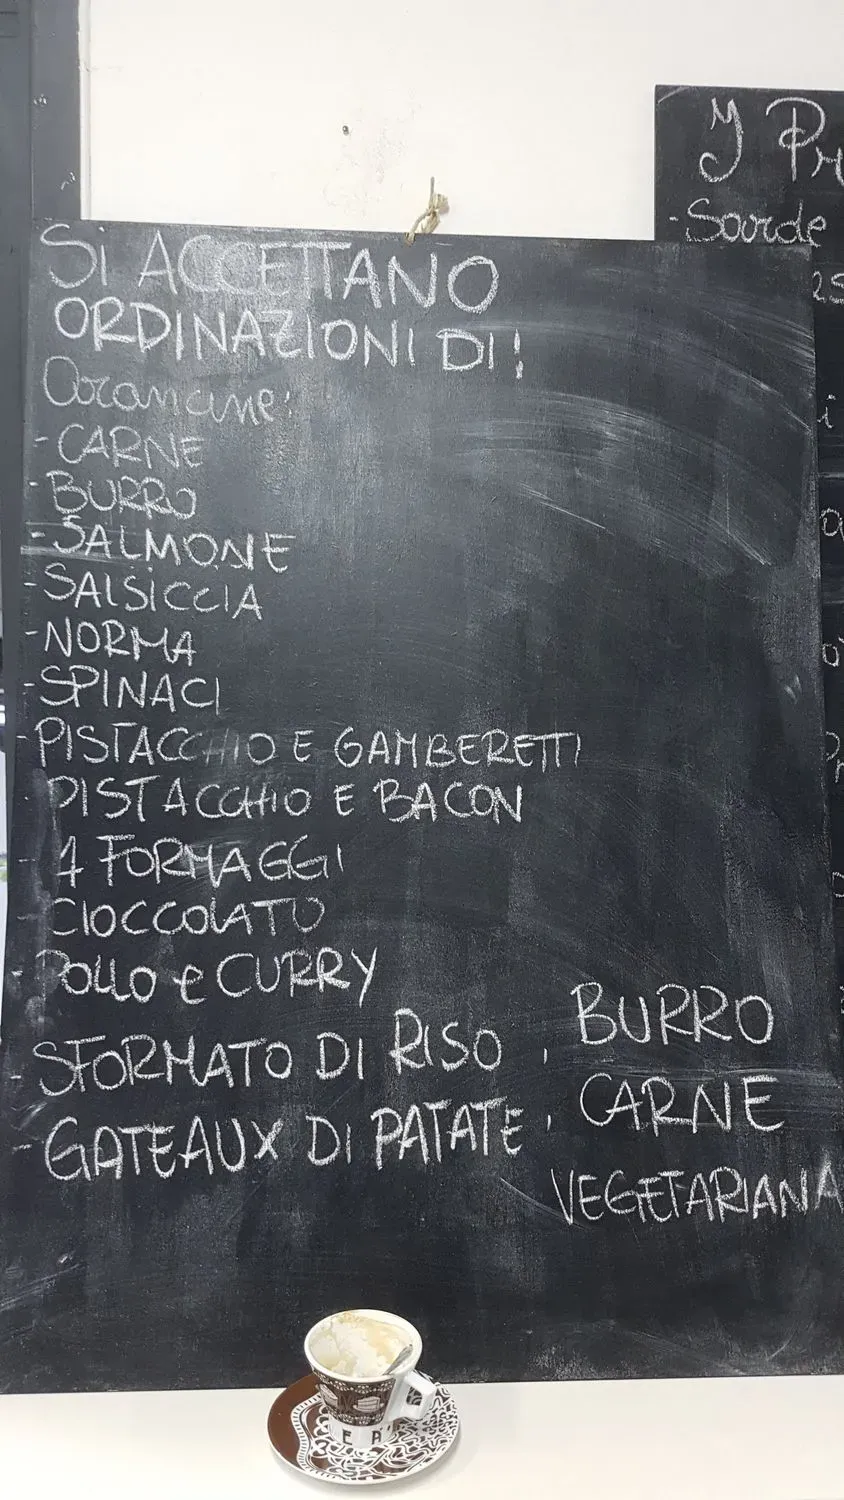 Si ACCETTANO
ORDINAZIONI DI!
Arancine:
- CARNE
- BURRO
- SALMONE
- SALSICCIA
- NORMA
- SPINACI
- PISTACCHIO E GAMBERETTI
- PISTACCHIO E BACON
- 4 FORMAGGI
CIOCCOLATO
- Pollo e CURRY
- SFORMATO DI RISO, BURRO
- GATEAUX DI PATATE, CARNE
VEGETARIANA
I
- Sarde